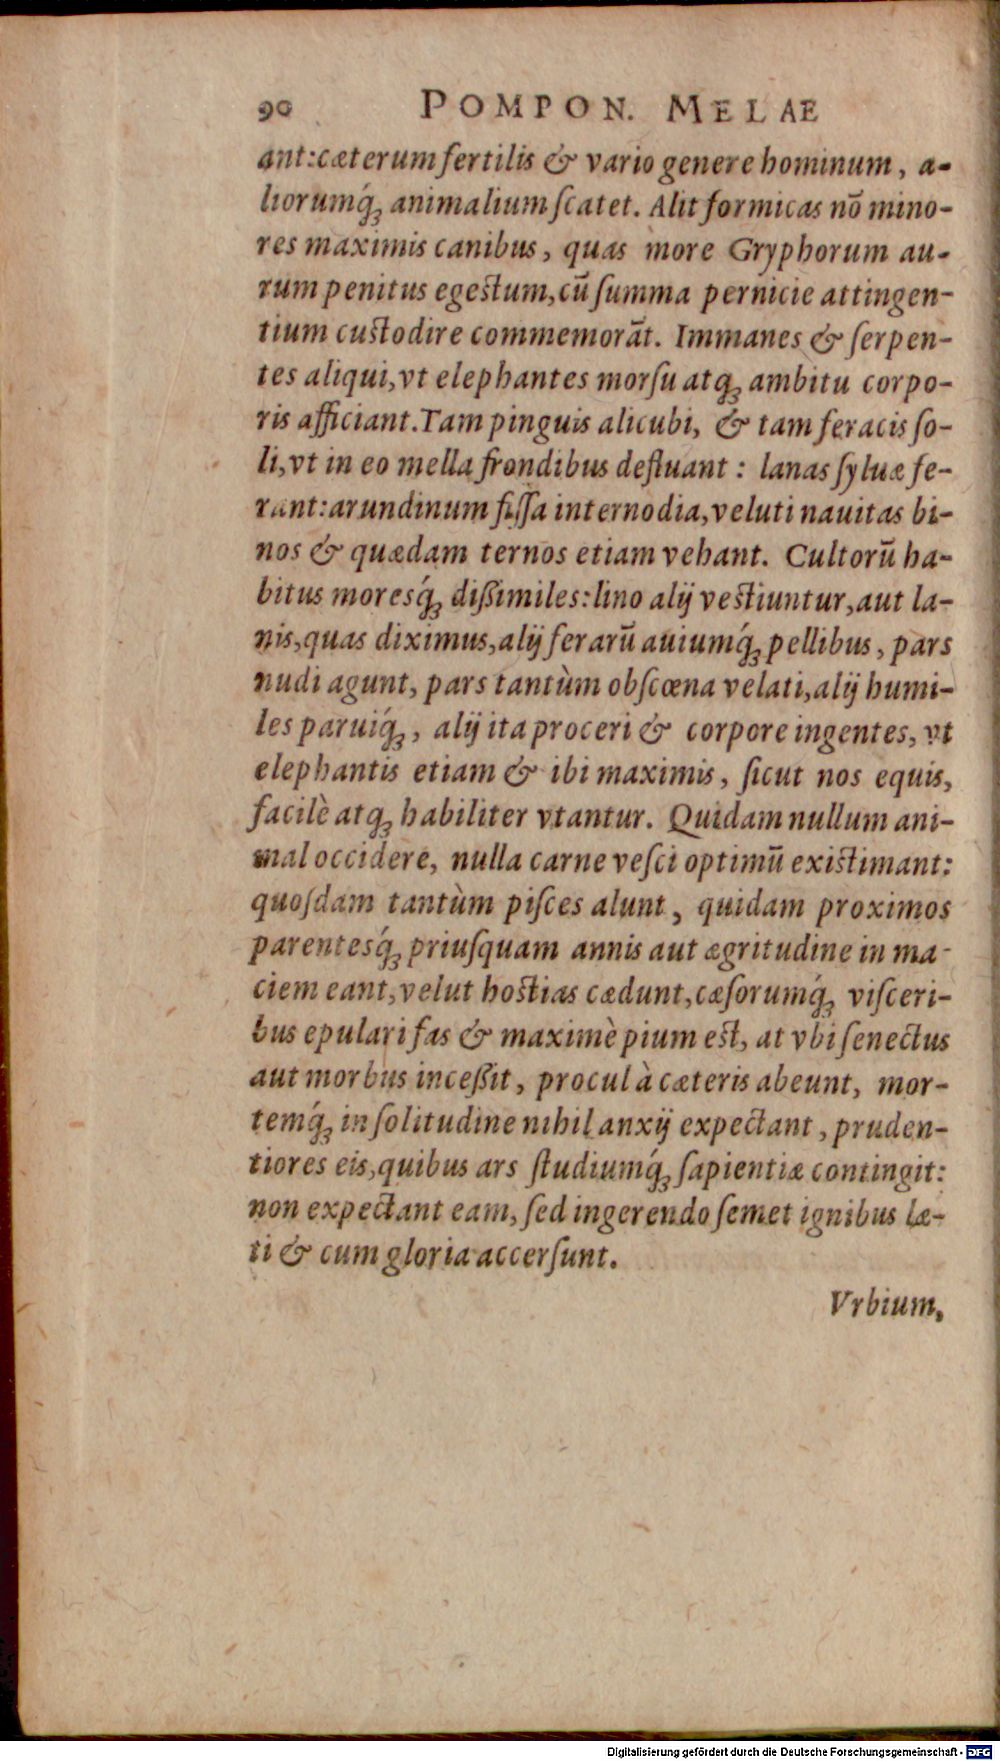 90 POMPON. MELAE
ant:cæterum fertilis & vario genere hominum, a-
liorumq́ꝫ animalium ſcatet. Alit formicas nõ mino-
res maximis canibus, quas more Gryphorum au-
rum penitus egeſtum, cũ ſumma pernicie attingen-
tium cuſtodire commemorãt. Immanes & ſerpen-
tes aliqui, vt elephantes morſu atqꝫ ambitu corpo-
ris afficiant. Tam pinguis alicubi, & tam feracis ſo-
li, vt in eo mella frondibus defluant : lanas ſyluæ fe-
rant: arundinum fiſſa internodia, veluti nauitas bi-
nos & quædam ternos etiam vehant. Cultorũ ha-
bitus moresq́ꝫ dißimiles: lino alij veſtiuntur, aut la-
nis, quas diximus, alij ferarũ auiumq́ꝫ pellibus, pars
nudi agunt, pars tantùm obſcœna velati, alij humi-
les paruiq́ꝫ, alij ita proceri & corpore ingentes, vt
elephantis etiam & ibi maximis, ſicut nos equis,
facilè atqꝫ habiliter vtantur. Quidam nullum ani-
mal occidere, nulla carne veſci optimũ exiſtimant:
quoſdam tantùm piſces alunt, quidam proximos
parentesq́ꝫ priuſquam annis aut ægritudine in ma-
ciem eant, velut hoſtias cædunt, cæſorumq́ꝫ viſceri-
bus epulari fas & maximè pium eſt, at vbi ſenectus
aut morbus inceßit, procul à cæteris abeunt, mor-
temq́ꝫ in ſolitudine nihil anxij expectant, pruden-
tiores eis, quibus ars ſtudiumq́ꝫ ſapientiæ contingit:
non expectant eam, ſed ingerendo ſemet ignibus læ-
ti & cum gloria accerſunt.
Vrbium,
Digitalisierung gefördert durch die Deutsche Forschungsgemeinschaft - DFG